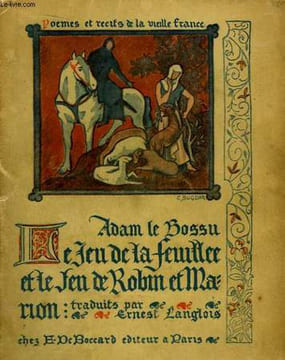 Le-livre.com
Poemes et recits de la vieille france
C. BUGDAR
Adam le Bossu
Le Jeu de la feuillee
et le Jeu de Robin et Ma-
rion : traduits par
Ernest Langlois
chez E. De Boccard editeur a Paris